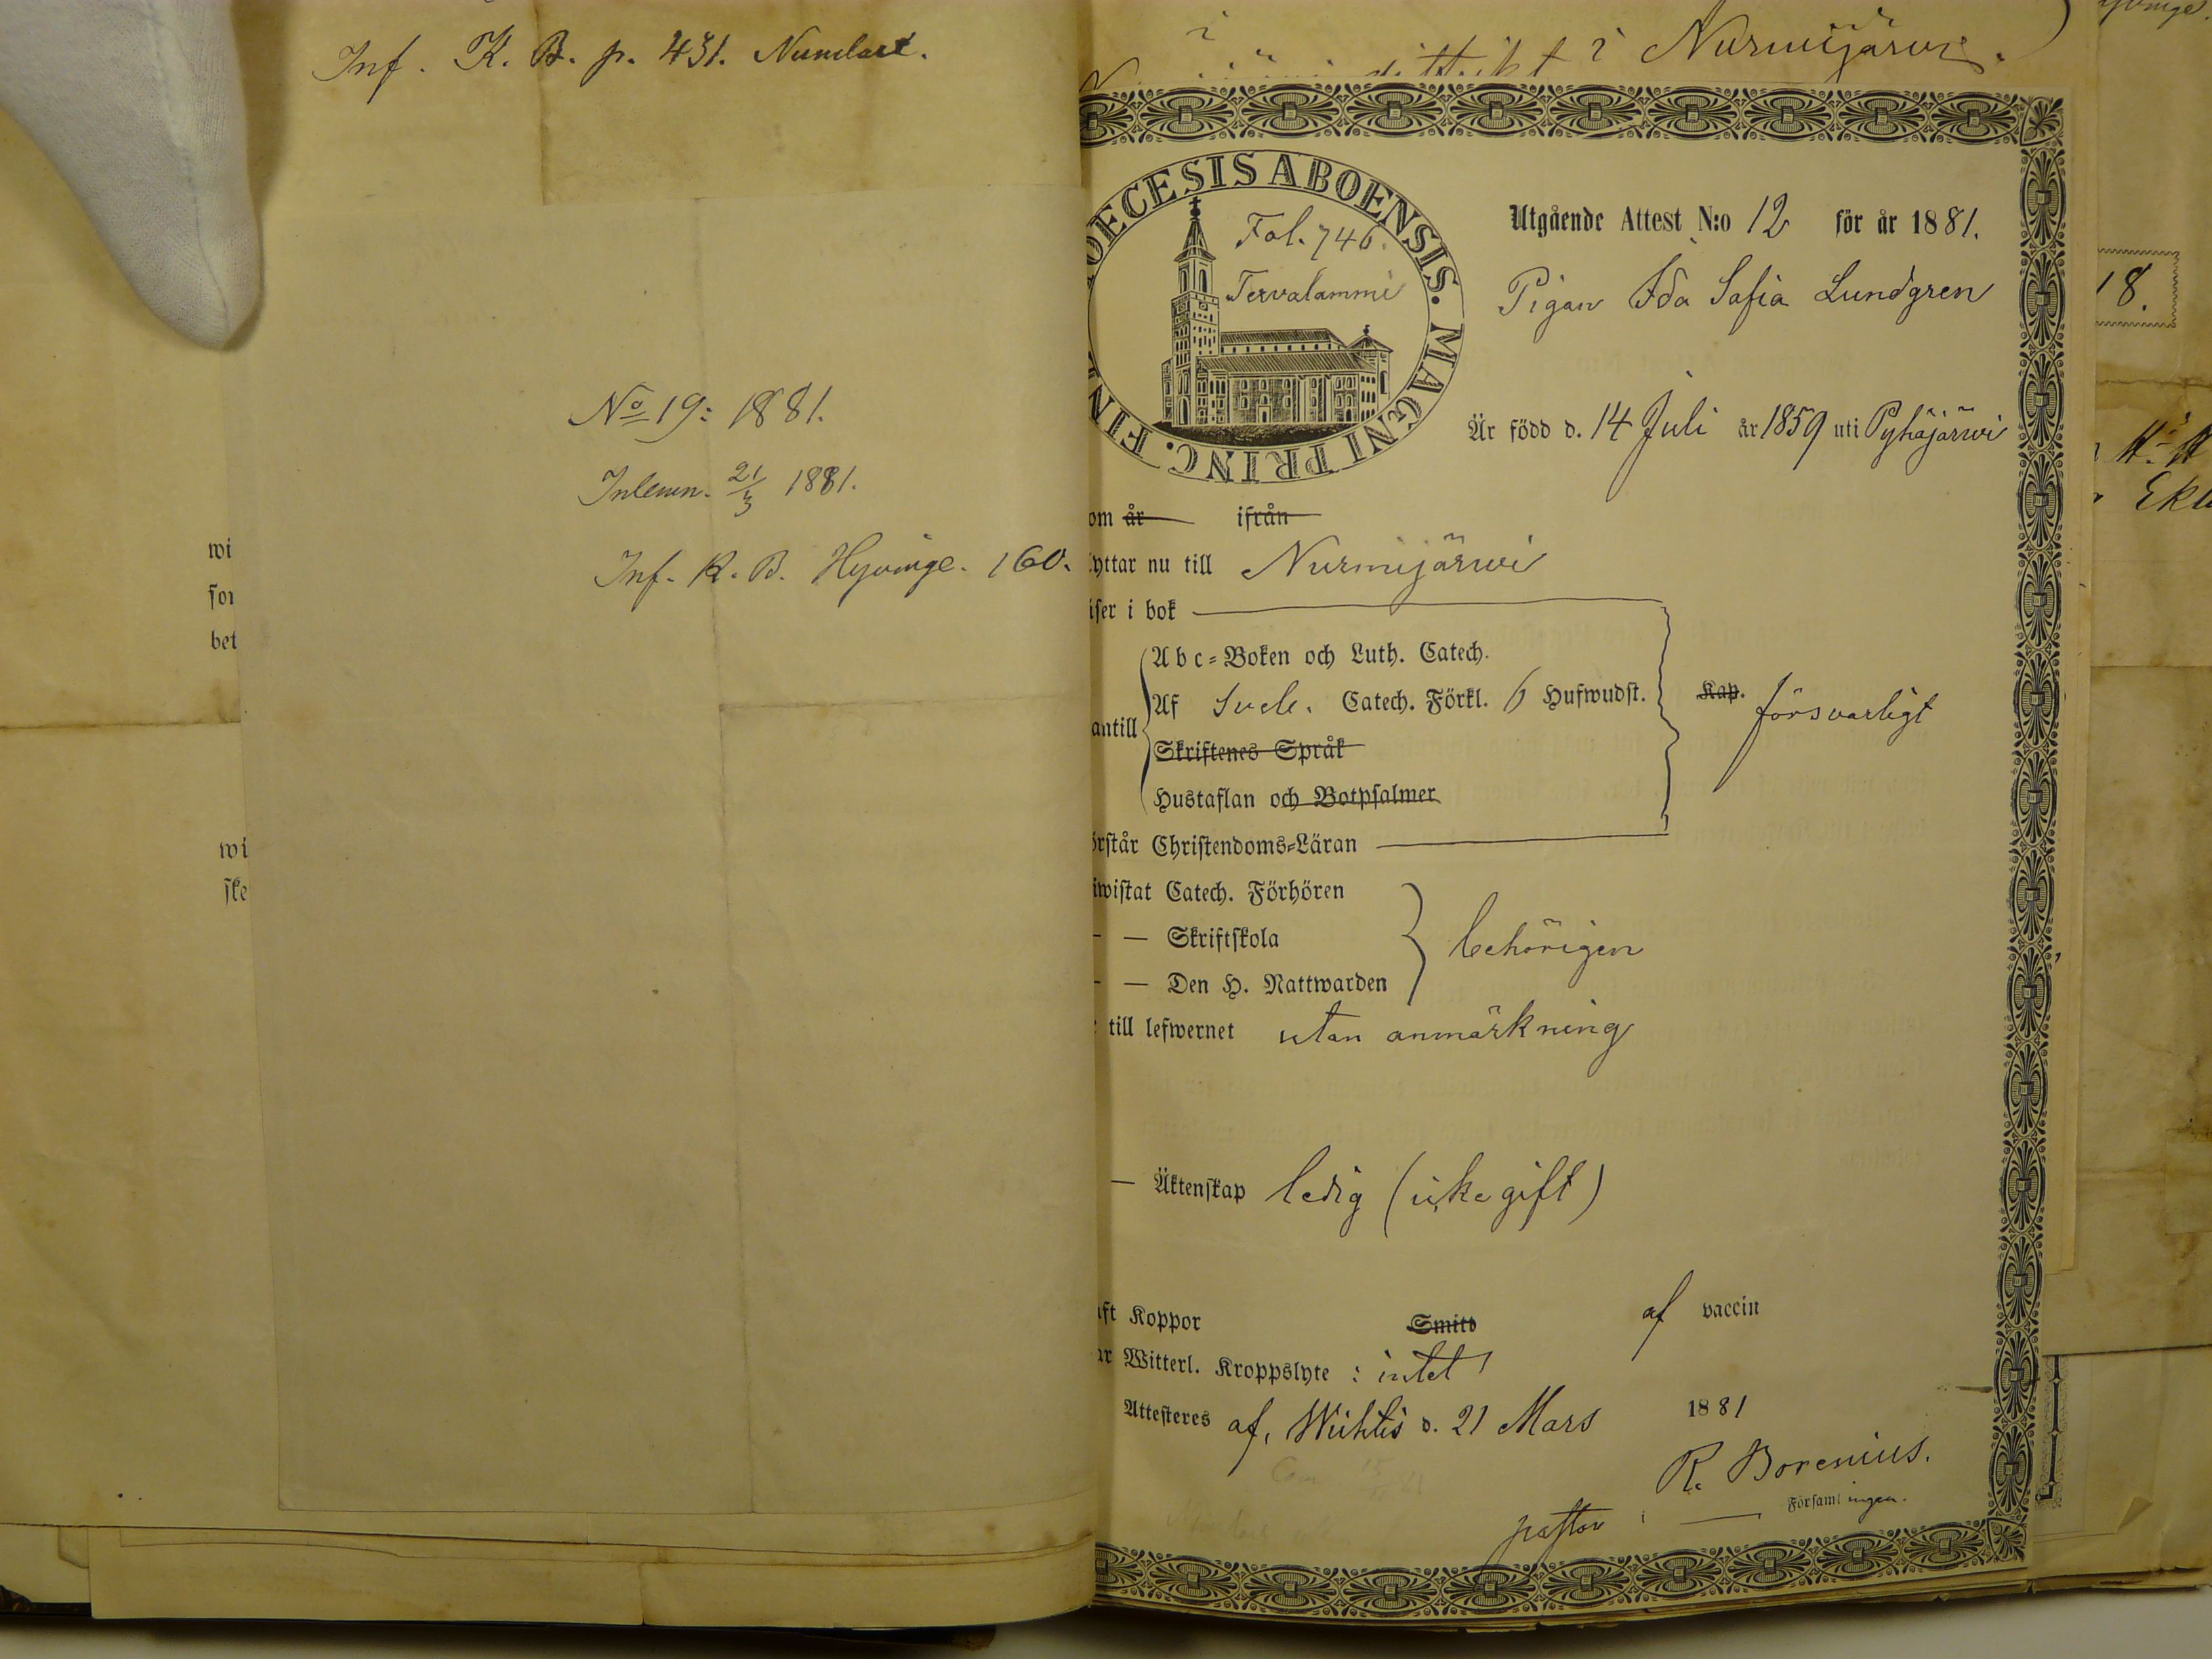 Inf. K. B. p. 431. Numlart.
wi
for
bet
wi
ske
No 19: 1881.
Inlemn. 21/3 1881.
Inf. K. B. Hyvinge. 160.
i Nurmijärvi.
DIOECESIS ABOENSIS. MAGNI PRINC. FIN
Fol. 746.
Tervalammi
Utgående Attest N:o 12 för år 1881.
Pigan Ida Sofia Lundgren
Är född d. 14 Juli år 1859 uti Pyhäjärwi
om år ifrån
yttar nu till Nurmijärwi
iser i bok
antill
Abc-Boken och Luth. Catech.
Af Sveb. Catech. Förkl. 6 Hufwudst.
Skriftenes Språk
Hustaflan och Botpsalmer
Kap. försvarligt
örstår Christendoms-Läran
iwistat Catech. Förhören
— — Skriftskola
— — Den H. Nattwarden
behörigen
till lefwernet utan anmärkning
— Äktenskap ledig (icke gift)
aft Koppor Smitt af vaccin
ar Witterl. Kroppslyte : intet
Attesteres af, Wichtis d. 21 Mars 1881
R. Borenius.
pastor i — Församlingen.
18.
Eklu